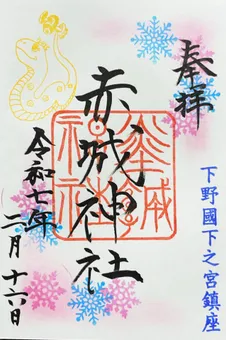 奉拝
下野國下之宮鎮座
赤城神社
令和七年
二月十六日